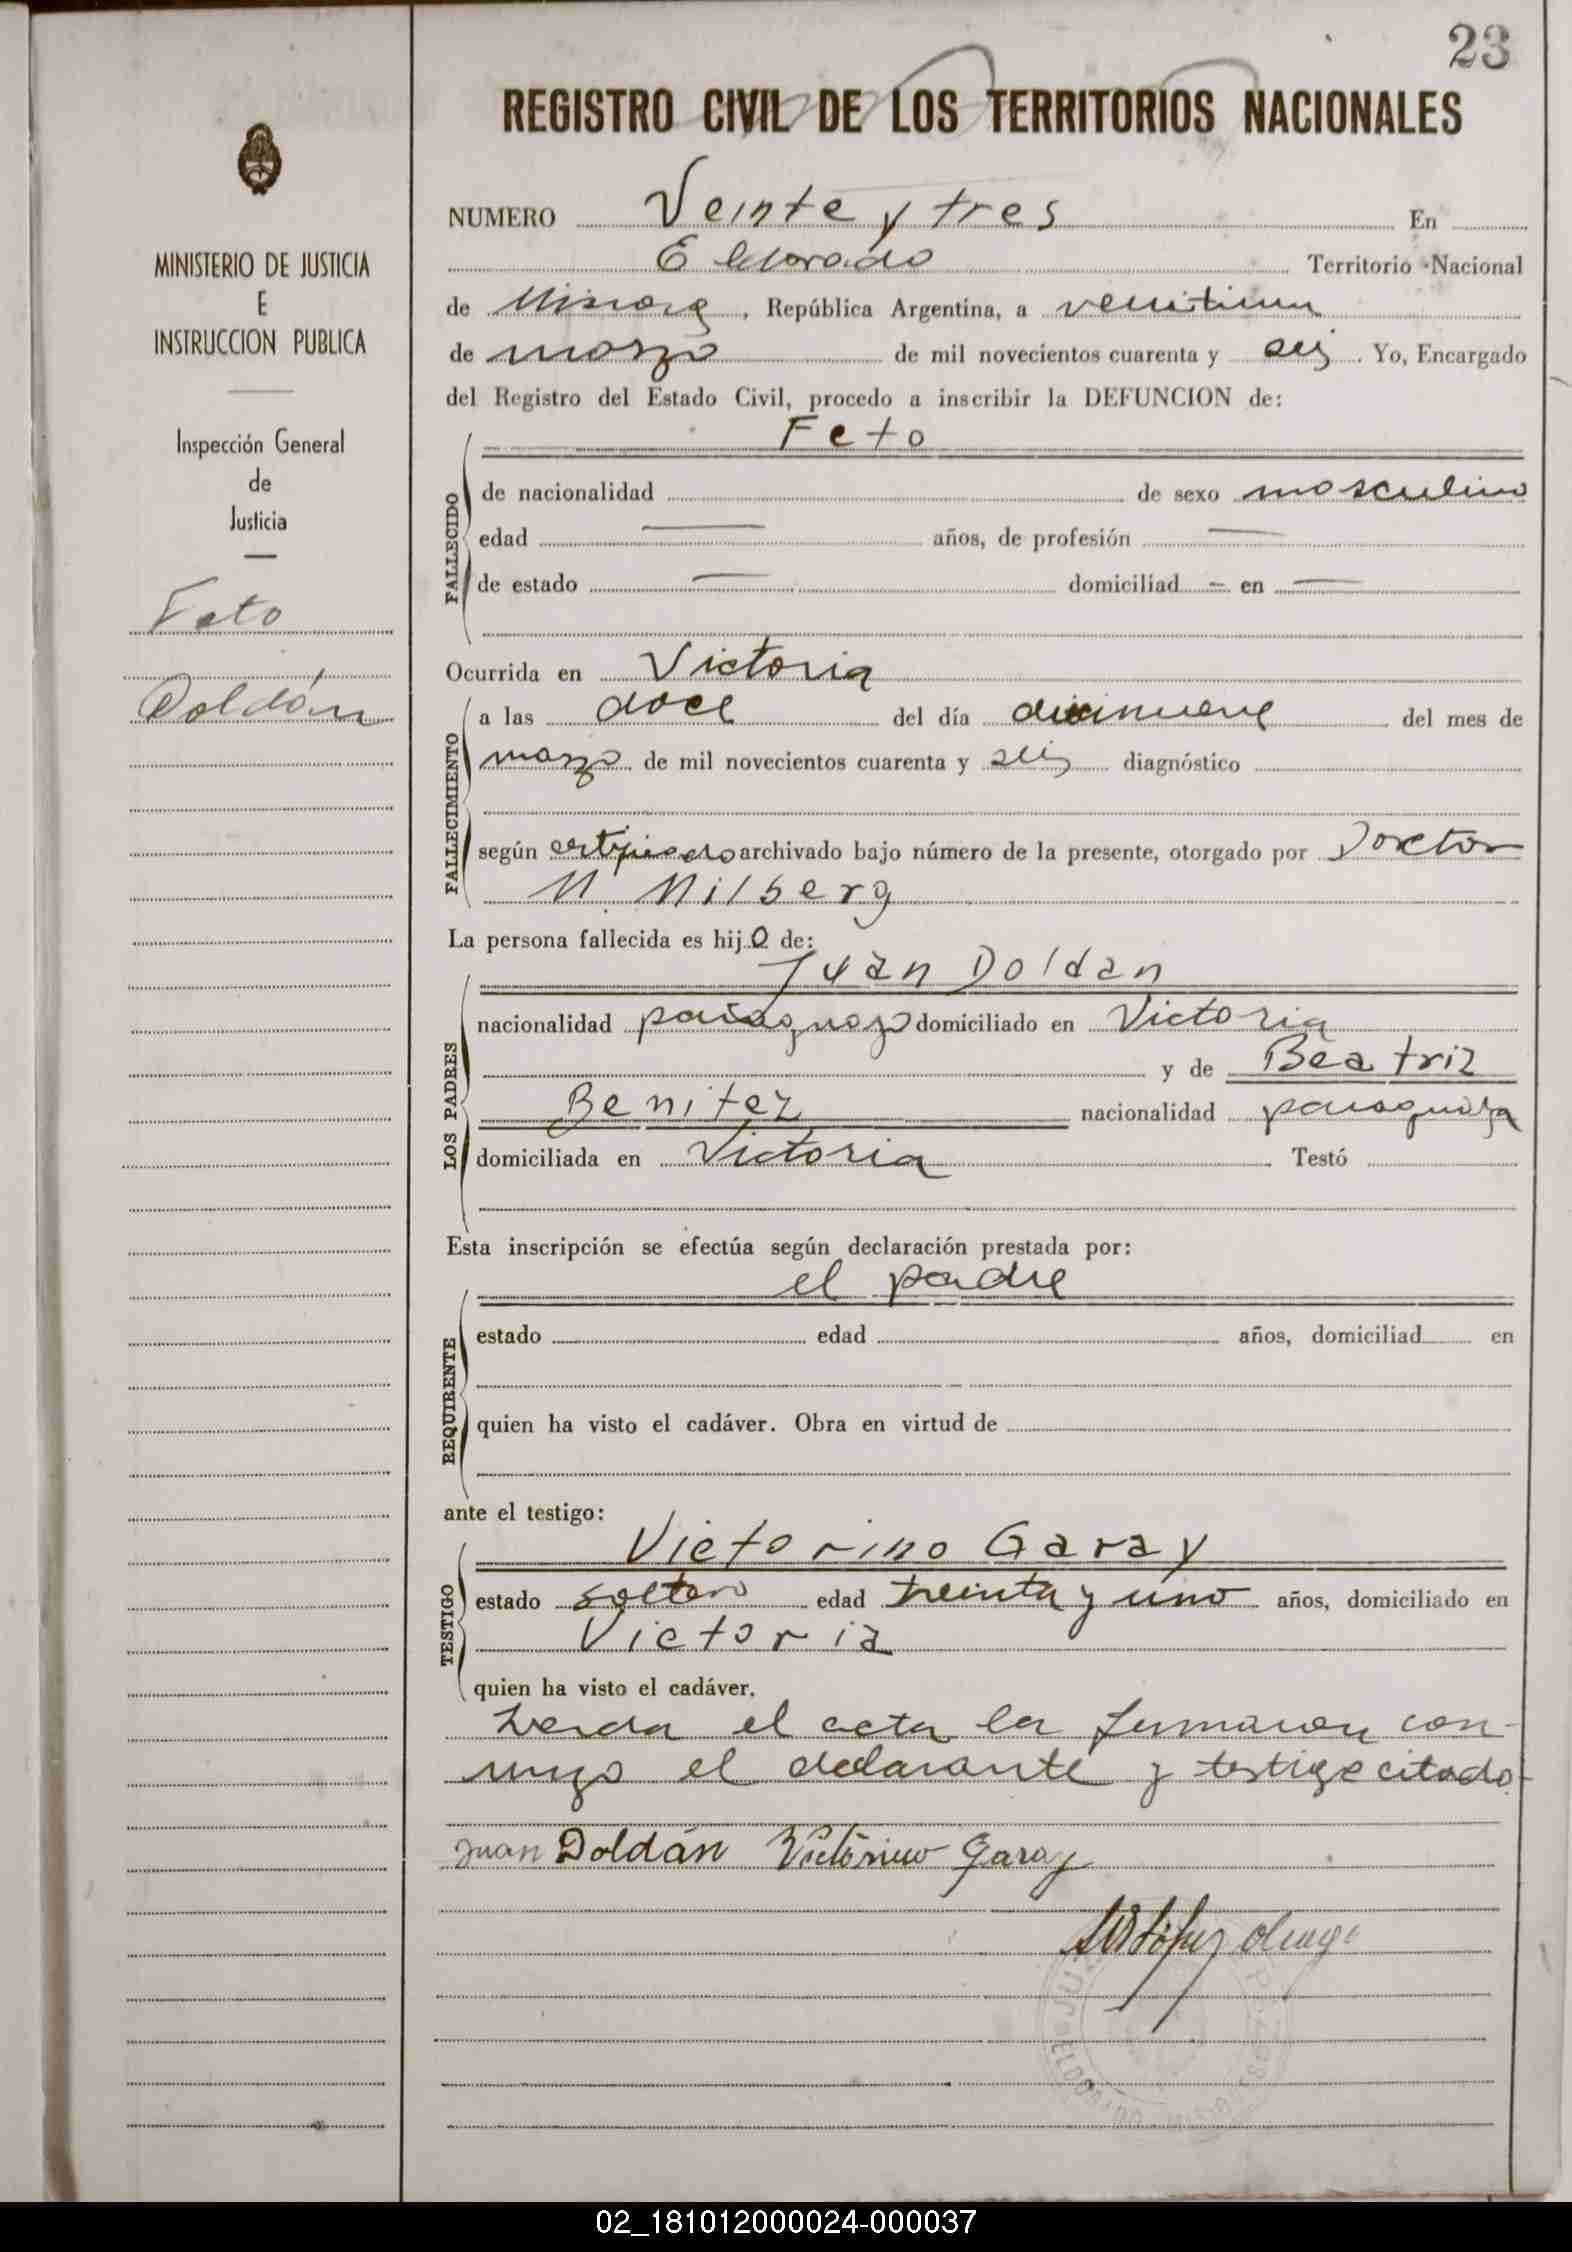 23
REGISTRO CIVIL DE LOS TERRITORIOS NACIONALES
MINISTERIO DE JUSTICIA
E
INSTRUCCION PUBLICA
Inspección General
de
Justicia
Feto
Doldán
NUMERO Veinte y tres En
Eldorado Territorio Nacional
de Misiones, República Argentina, a veintiuno
de marzo de mil novecientos cuarenta y seis. Yo, Encargado
del Registro del Estado Civil, procedo a inscribir la DEFUNCION de:
Feto
FALLECIDO
de nacionalidad de sexo masculino
edad — años, de profesión —
de estado — domiciliad – en —
Ocurrida en Victoria
FALLECIMIENTO
a las doce del día diecinueve del mes de
marzo de mil novecientos cuarenta y seis diagnóstico
según certificado archivado bajo número de la presente, otorgado por Doctor
N. Nilberg
La persona fallecida es hijo de:
LOS PADRES
Juan Doldan
nacionalidad paraguayo domiciliado en Victoria
y de Beatriz
Benitez nacionalidad paraguaya
domiciliada en Victoria Testó
Esta inscripción se efectúa según declaración prestada por:
REQUIRENTE
el padre
estado edad años, domiciliad en
quien ha visto el cadáver. Obra en virtud de
ante el testigo:
TESTIGO
Victorino Garay
estado soltero edad treinta y uno años, domiciliado en
Victoria
quien ha visto el cadáver.
Leida el acta la firmaron con-
migo el declarante y testigo citado.-
Juan Doldán Victórino Garay
ELDORADO
02_181012000024-000037